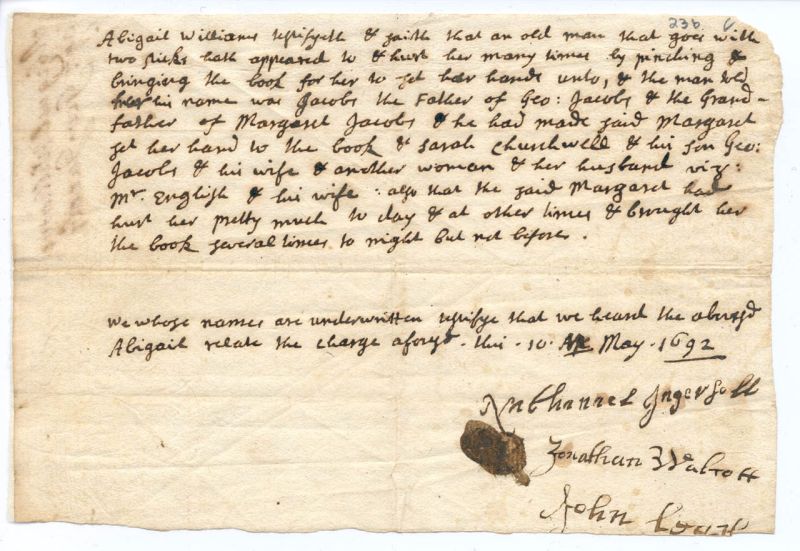 236 6
Abigail Williams testifyeth & saith that an old man that goes with
two sticks hath appeared to & hurt her many times by pinching &
bringing the book for her to set her hands unto, & the man told
her his name was Jacobs the Father of Geo: Jacobs & the Grand-
father of Margaret Jacobs & he had made said Margaret
set her hand to the book & Sarah Churchwell & his son Geo:
Jacobs & his wife & another woman & her husband viz:
Mr. English & his wife : also that the said Margaret had
hurt her pretty much to day & at other times & brought her
the book several times to night but not before.
We whose names are underwritten testifye that we heard the abovsd
Abigail relate the charge aforesd. this . 10. May . 1692
Nathaniel Ingersoll
Jonathan Walcott
John